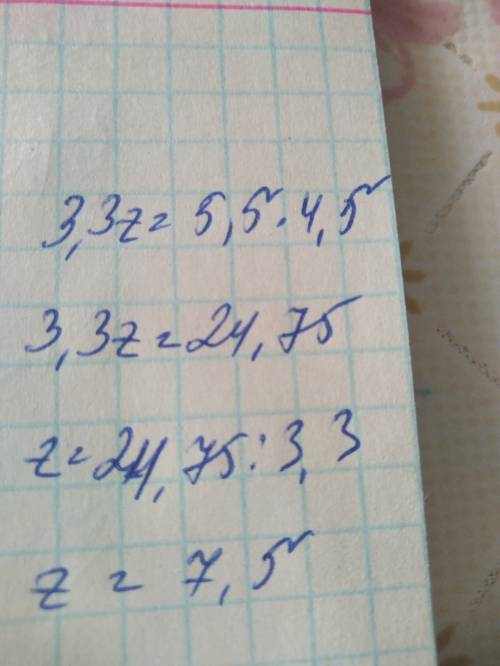 3,3z = 5,5 · 4,5
3,3z = 24,75
z = 24,75 : 3,3
z = 7,5